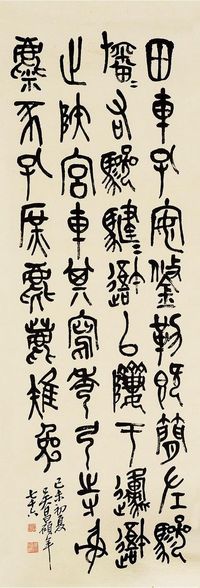 田車孔安鋚勒既簡左驂
旛〻右驂騝〻吾以隮于邍吾
止陝宮車其寫秀弓寺射
麋豕孔庶麀鹿雉兔
己未初夏
吳昌碩年
七十六